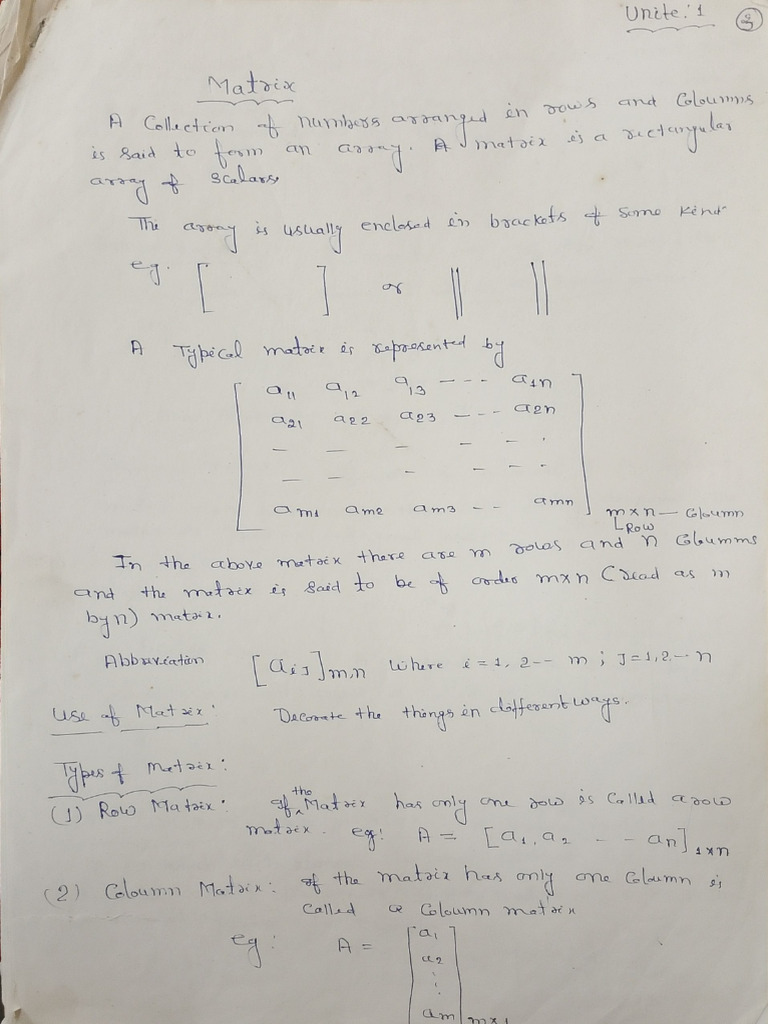 Unite: 1 2
Matrix
A Collection of numbers arranged in rows and Coloumns
is said to form an array. A matrix is a rectangular
array of scalars
The array is usually enclosed in brackets of some kind
eg. [ ] or || ||
A Typical matrix is represented by
a11 a12 a13 --- a1n
a21 a22 a23 --- a2n
- - - - - .
- - - - - -
am1 am2 am3 -- amn
m×n – Coloumn
Row
In the above matrix there are m rows and n Coloumns
and the matrix is said to be of order m×n (read as m
by n) matrix.
Abbreviation [aiJ]m,n Where i=1, 2-- m ; J=1,2--n
Use of Matrix: Decorate the things in different ways.
Types of Matrix:
(1) Row Matrix: If the Matrix has only one row is Called a row
matrix. eg: A = [a1, a2 - - an]1×n
(2) Coloumn Matrix: If the matrix has only one Coloumn is
Called a Coloumn matrix
eg: A = a1
a2
⋮
am m×1